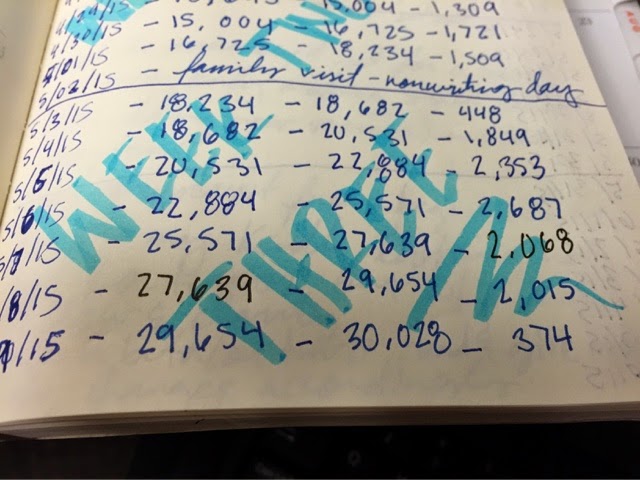 15,004 - 1,309
4/30/15 - 15,004 - 16,725 - 1,721
5/01/15 - 16,725 - 18,234 - 1,509
5/02/15 - family visit - nonwriting day
5/3/15 - 18,234 - 18,682 - 448
5/4/15 - 18,682 - 20,531 - 1,849
5/5/15 - 20,531 - 22,884 - 2,353
5/6/15 - 22,884 - 25,571 - 2,687
5/7/15 - 25,571 - 27,639 - 2,068
/8/15 - 27,639 - 29,654 - 2,015
/15 - 29,654 - 30,028 - 374
WEEK
THREE